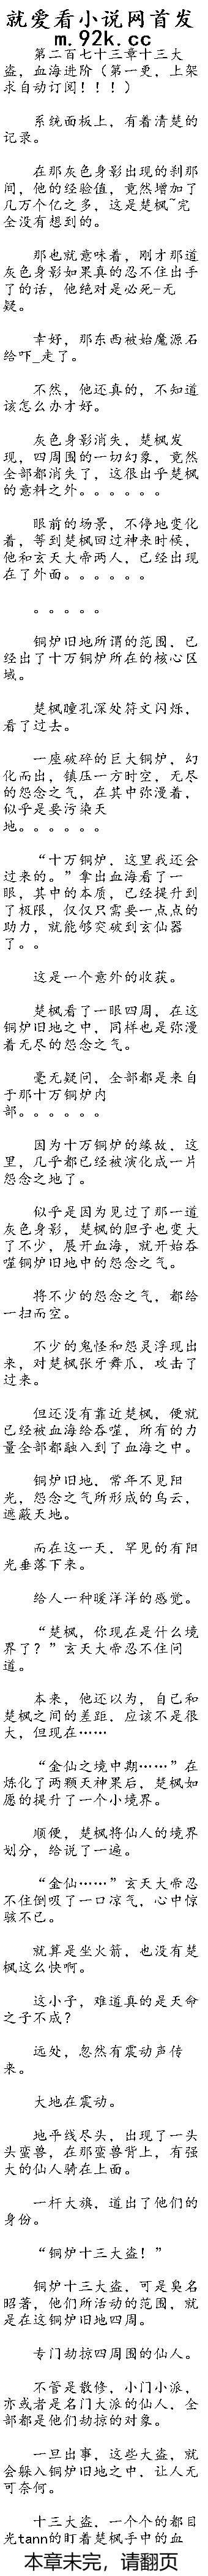 就爱看小说网首发
m.92k.cc
第二百七十三章十三大
盗，血海进阶（第一更，上架
求自动订阅！！！）
系统面板上，有着清楚的
记录。
在那灰色身影出现的刹那
间，他的经验值，竟然增加了
几万个亿之多，这是楚枫~完
全没有想到的。
那也就意味着，刚才那道
灰色身影如果真的忍不住出手
了的话，他绝对是必死-无
疑。
幸好，那东西被始魔源石
给吓_走了。
不然，他还真的，不知道
该怎么办才好。
灰色身影消失，楚枫发
现，四周围的一切幻象，竟然
全部都消失了，这很出乎楚枫
的意料之外。。。。。。
眼前的场景，不停地变化
着，等到楚枫回过神来时候，
他和玄天大帝两人，已经出现
在了外面。。。。。。
。。。。。
铜炉旧地所谓的范围，已
经出了十万铜炉所在的核心区
域。
楚枫瞳孔深处符文闪烁，
看了过去。
一座破碎的巨大铜炉，幻
化而出，镇压一方时空，无尽
的怨念之气，在其中弥漫着，
似乎是要污染天
地。。。。。。
“十万铜炉，这里我还会
过来的。”拿出血海看了一
眼，其中的本质，已经提升到
了极限，仅仅只需要一点点的
助力，就能够突破到玄仙器
了。。
这是一个意外的收获。
楚枫看了一眼四周，在这
铜炉旧地之中，同样也是弥漫
着无尽的怨念之气。
毫无疑问，全部都是来自
于那十万铜炉内
部。。。。。。
因为十万铜炉的缘故，这
里，几乎都已经被演化成一片
怨念之地了。
似乎是因为见过了那一道
灰色身影，楚枫的胆子也变大
了不少，展开血海，就开始吞
噬铜炉旧地中的怨念之气。
将不少的怨念之气，都给
一扫而空。
不少的鬼怪和怨灵浮现出
来，对楚枫张牙舞爪，攻击了
过来。
但还没有靠近楚枫，便就
已经被血海给吞噬，所有的力
量全部都融入到了血海之中。
铜炉旧地，常年不见阳
光，怨念之气所形成的乌云，
遮蔽天地。
而在这一天，罕见的有阳
光垂落下来。
给人一种暖洋洋的感觉。
“楚枫，你现在是什么境
界了？”玄天大帝忍不住问
道。
本来，他还以为，自己和
楚枫之间的差距，应该不是很
大，但现在……
“金仙之境中期……”在
炼化了两颗天神果后，楚枫如
愿的提升了一个小境界。
顺便，楚枫将仙人的境界
划分，给说了一遍。
“金仙……”玄天大帝忍
不住倒吸了一口凉气，心中惊
骇不已。
就算是坐火箭，也没有楚
枫这么快啊。
这小子，难道真的是天命
之子不成？
远处，忽然有震动声传
来。
大地在震动。
地平线尽头，出现了一头
头蛮兽，在那蛮兽背上，有强
大的仙人骑在上面。
一杆大旗，道出了他们的
身份。
“铜炉十三大盗！”
铜炉十三大盗，可是臭名
昭著，他们所活动的范围，就
是在这铜炉旧地四周。
专门劫掠四周围的仙人。
不管是散修，小门小派，
亦或者是名门大派的仙人，全
部都是他们劫掠的对象。
一旦出事，这些大盗，就
会躲入铜炉旧地之中，让人无
可奈何。
十三大盗，一个个的都目
光tann的盯着楚枫手中的血
本章未完，请翻页